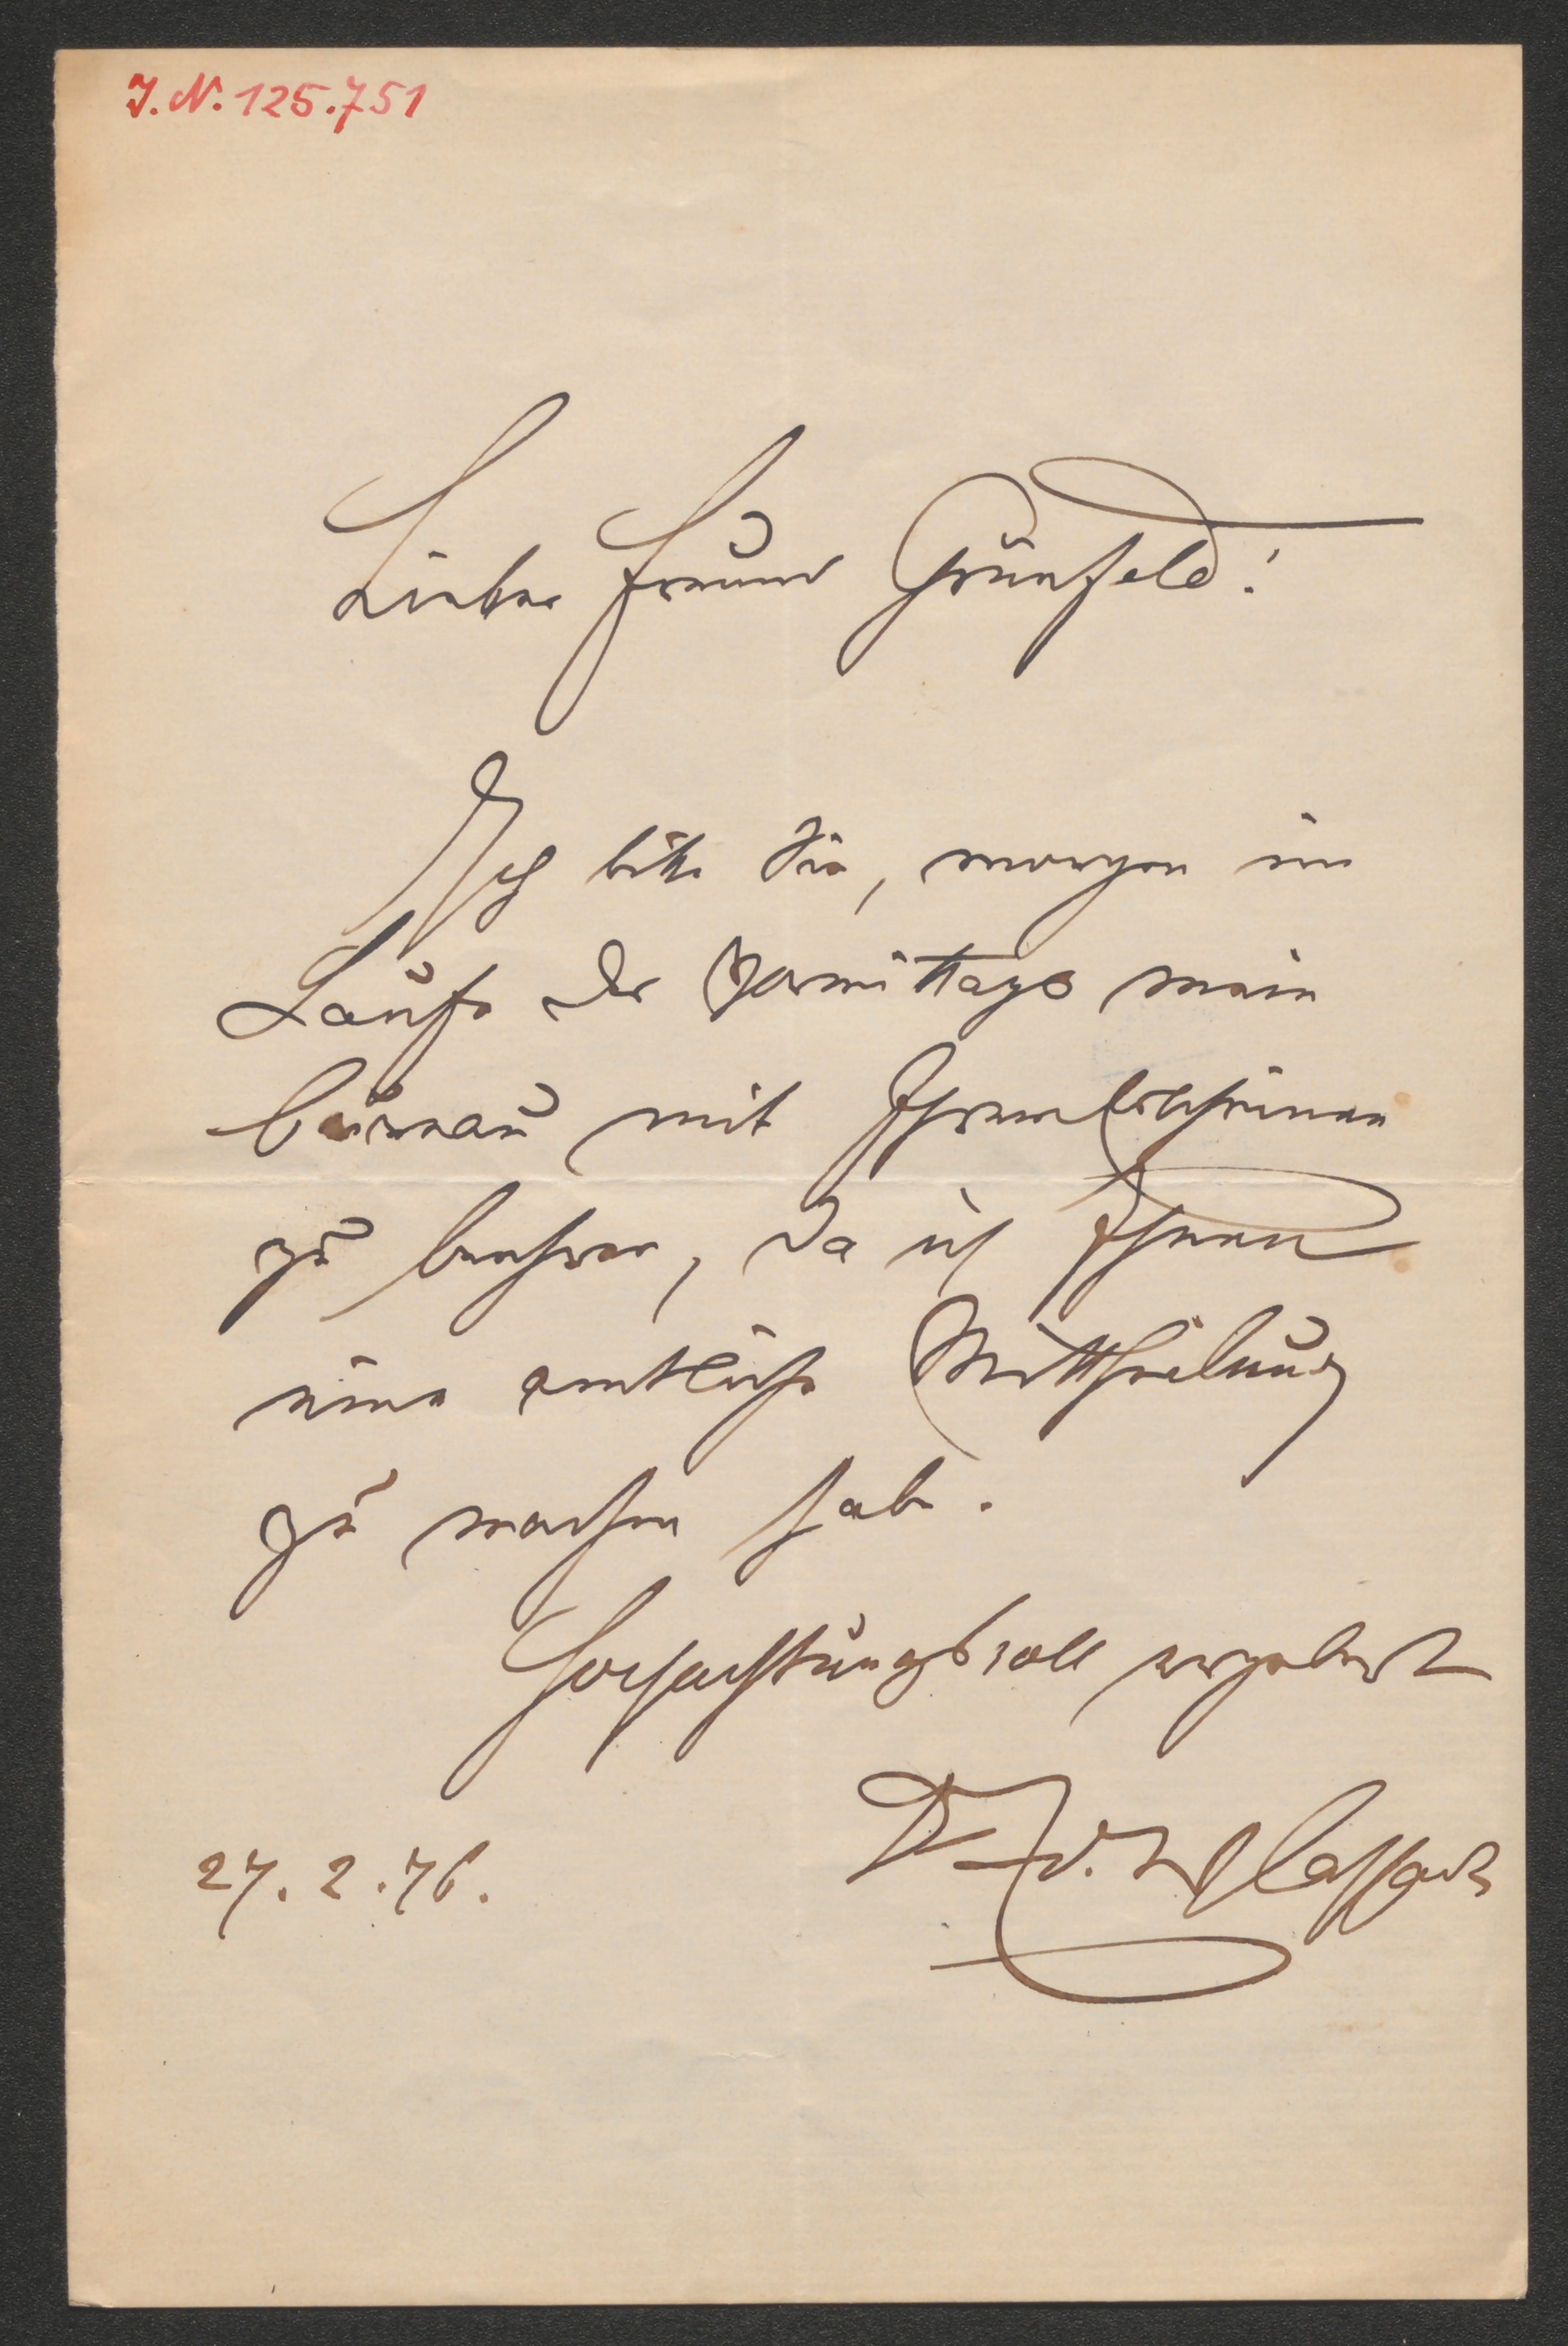 J. N. 125.751
Lieber Freund Grünfeld!
Ich bitte Sie, morgen im
Laufe des Vormittags mein
Bureau mit Ihrem Erscheinen
zu beehren, da ich Ihnen
eine amtliche Mittheilung
zu machen habe.
Hochachtungsvoll ergebenst
Dr. J. v. Wlassack
27. 2. 76.